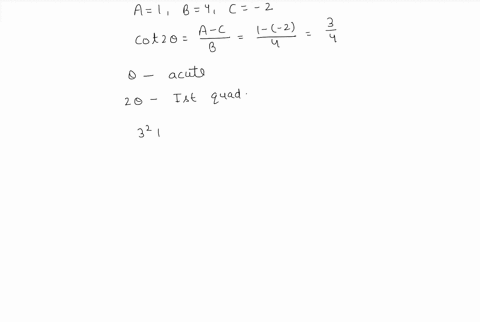 A=1, B=4, C=-2
cot2θ = A-C/B = 1-(-2)/4 = 3/4
θ - acute
2θ - Ist quad.
3² |